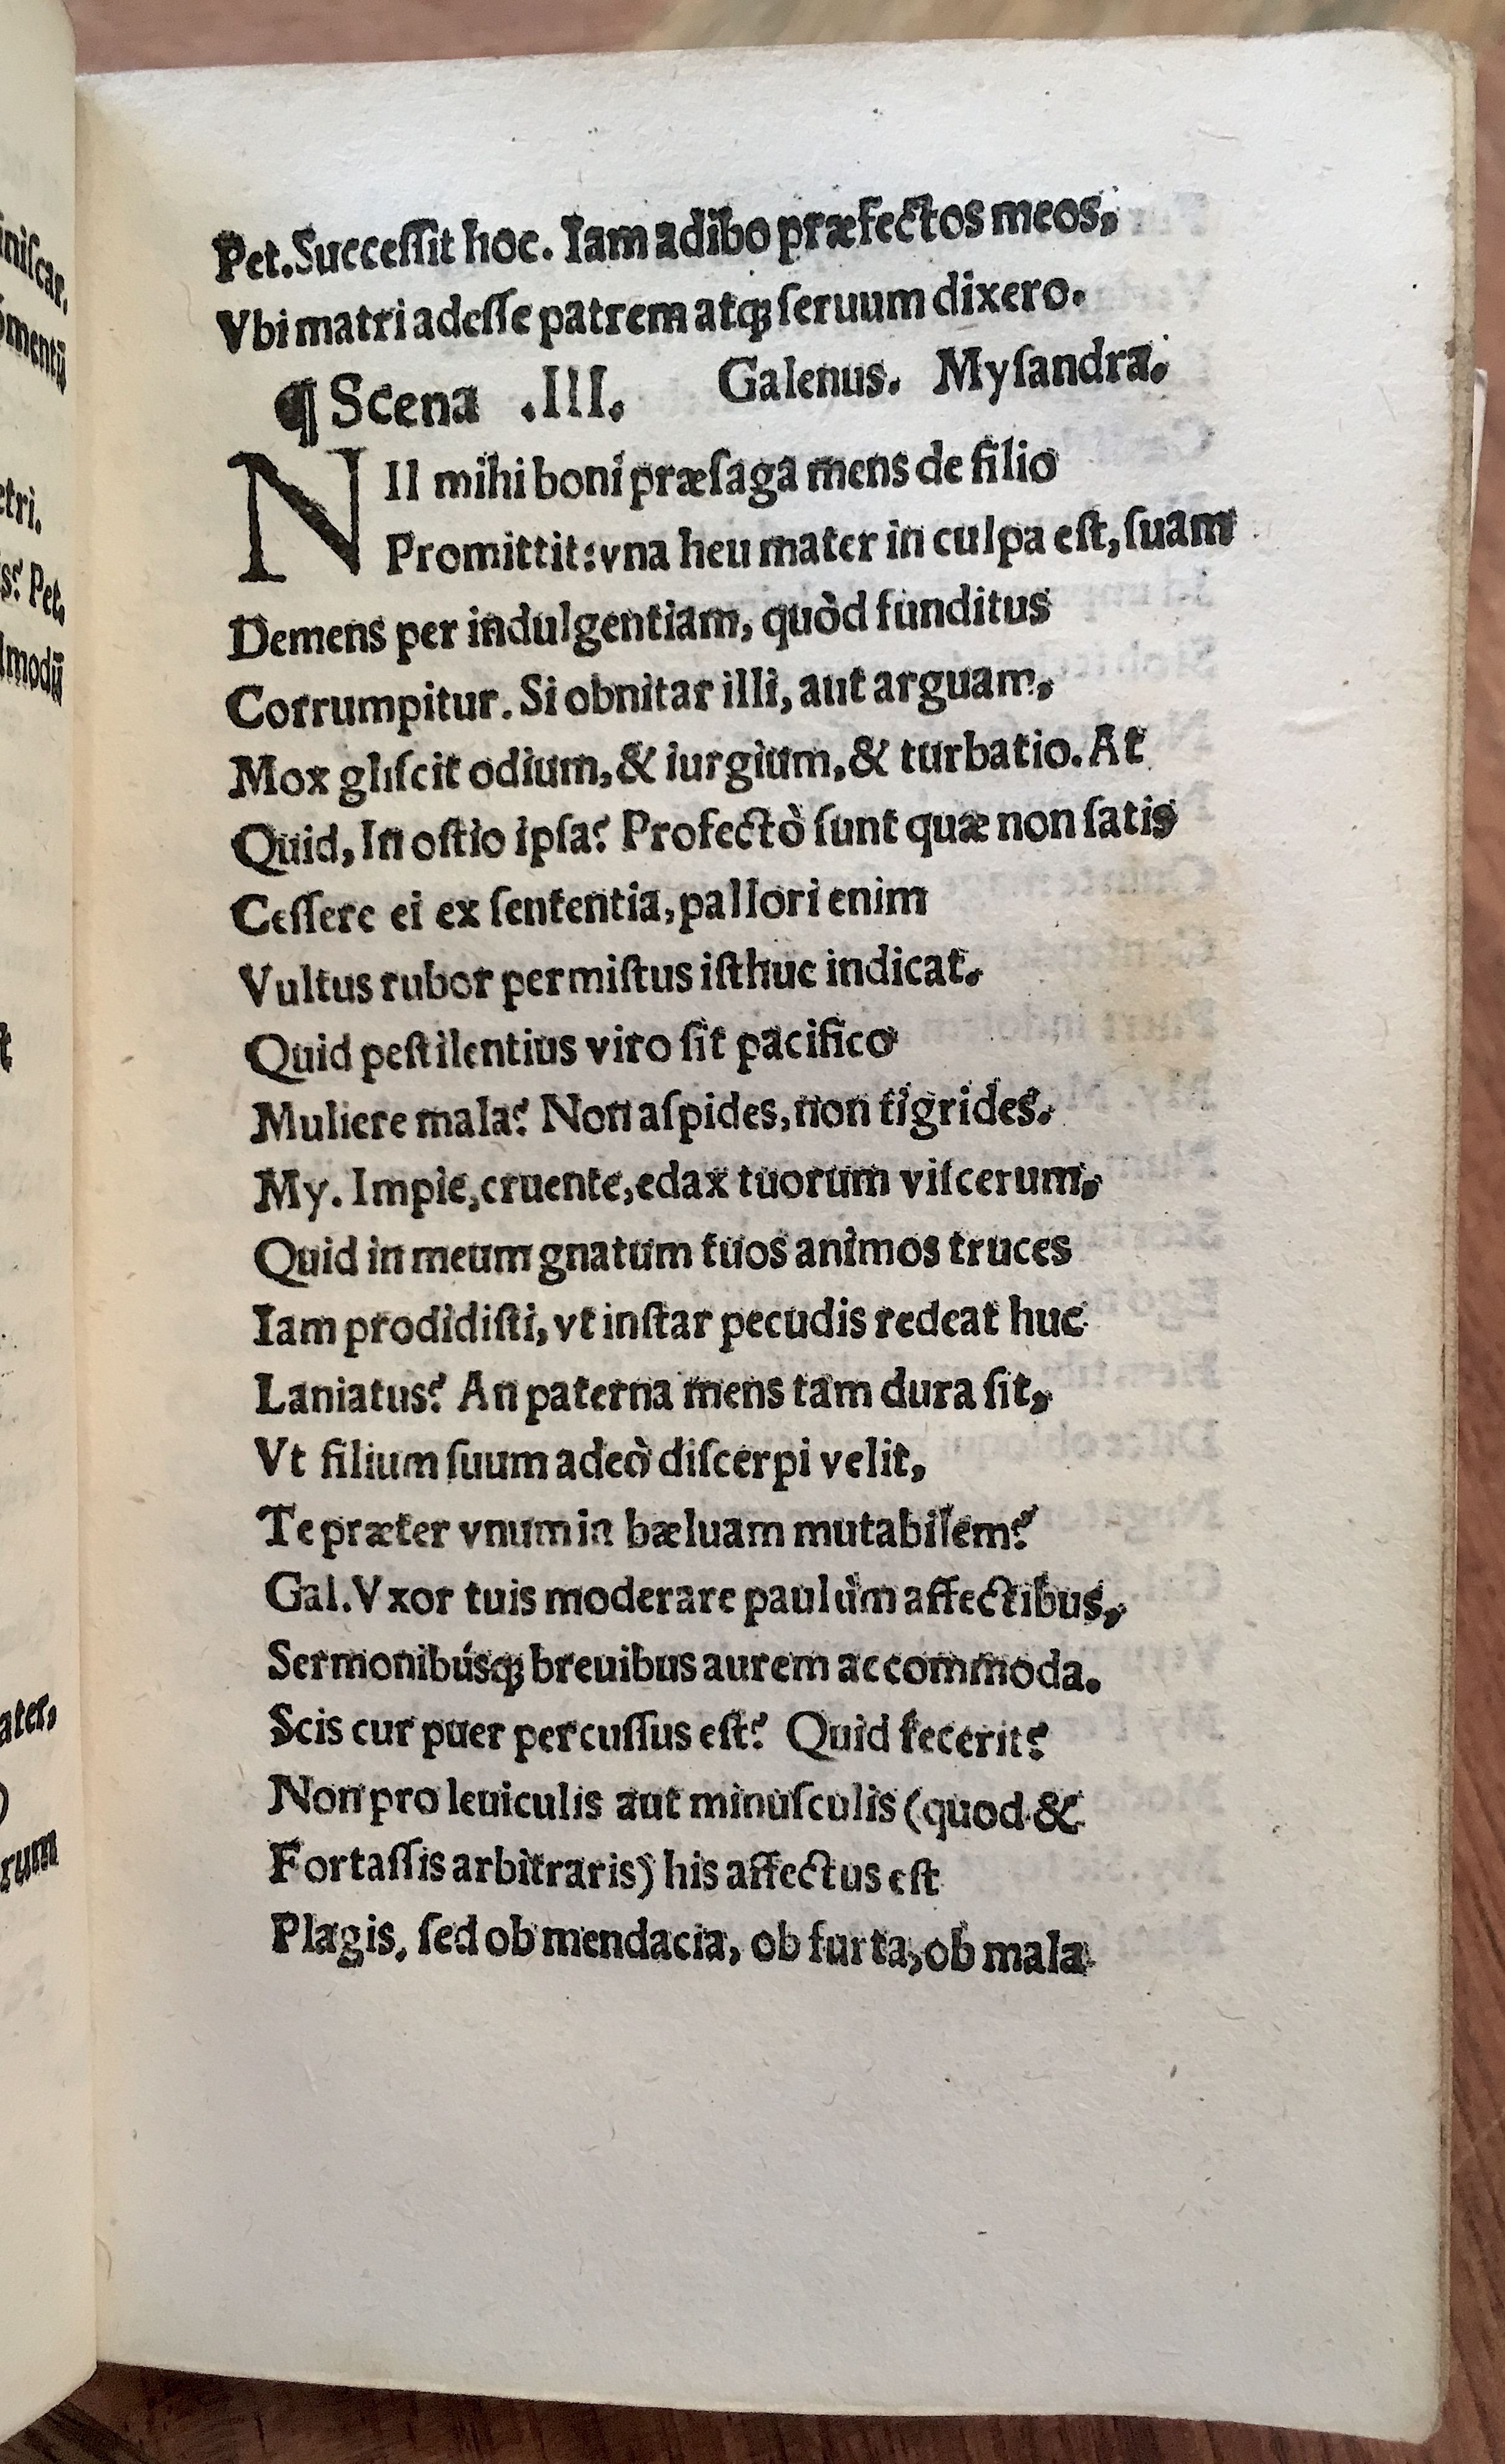 Pet.Succeſſit hoc. Iam adibo præfectos meos,
Vbi matri adeſſe patrem atqꝫ ſeruum dixero.
¶ Scena .III. Galenus. Myſandra.
NIl mihi boni præſaga mens de filio
Promittit:vna heu mater in culpa eſt, ſuam
Demens per indulgentiam, quòd funditus
Corrumpitur. Si obnitar illi, aut arguam,
Mox gliſcit odium,& iurgium,& turbatio. At
Quid, In oſtio ipſa? Profectò ſunt quæ non ſatis
Ceſſere ei ex ſententia, pallori enim
Vultus rubor permiſtus iſthuc indicat.
Quid peſtilentius viro ſit pacifico
Muliere mala? Non aſpides, non tigrides.
My. Impie, cruente, edax tuorum viſcerum,
Quid in meum gnatum tuos animos truces
Iam prodidiſti, vt inſtar pecudis redeat huc
Laniatus? An paterna mens tam dura ſit,
Vt filium ſuum adeò diſcerpi velit,
Te præter vnum in bæluam mutabilem?
Gal.Vxor tuis moderare paulùm affectibus,
Sermonibúsqꝫ breuibus aurem accommoda.
Scis cur puer percuſſus eſt? Quid fecerit?
Non pro leuiculis aut minuſculis (quod &
Fortaſſis arbitraris) his affectus eſt
Plagis, ſed ob mendacia, ob furta, ob mala
iniſcar.
etri.
s? Pet.
ater,
rum